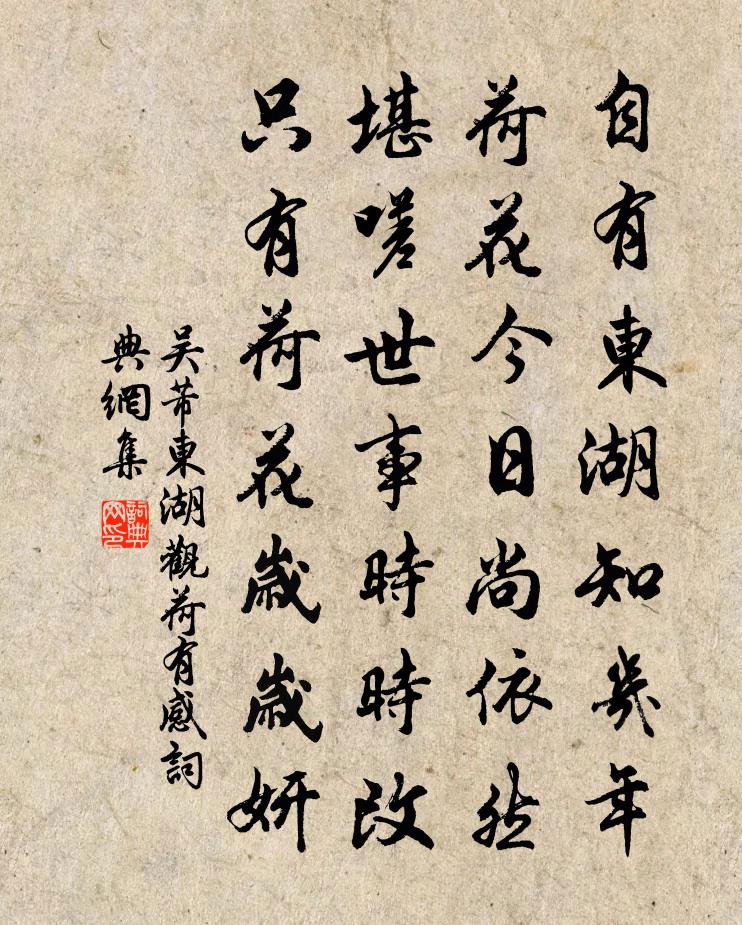 自有東湖知幾年
荷花今日尚依然
堪嗟世事時時改
只有荷花歲歲妍
吴芾東湖觀荷有感詞
典網集
詞典
网印